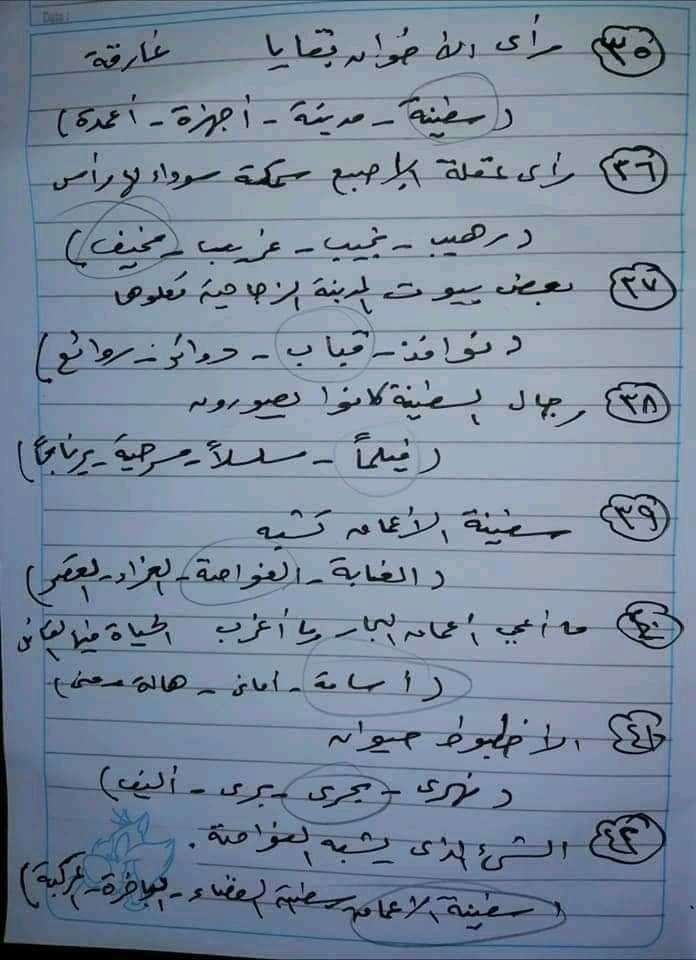 Date:
٣٥ رأى الاخوان بقايا غارقة
( سفينة - مدينة - أجهزة - أعمدة )
٣٦ رأى عقلة الإصبع سمكة سوداء لها رأس
( رهيب - عجيب - غريب - مخيف )
٣٧ بعض بيوت المدينة الزجاجية تعلوها
( نوافذ - قباب - دوائر - روائع )
٣٨ رجال السفينة كانوا يصورون
( فيلماً - مسلسلاً - مسرحية - برنامجاً )
٣٩ سفينة الأعماق تشبه
( الغابة - الغواصة - - القصر )
٤٠ ما أعمق البحار وما أغرب الحياة فيها
( أسامة - أمانى - هالة - منى )
٤١ الاخطبوط حيوان
( نهرى - بحرى - برى - أليف )
٤٢ الشئ الذى يشبه الغواصة .
( سفينة الاعماق - سفينة الفضاء - الباخرة - المركبة )